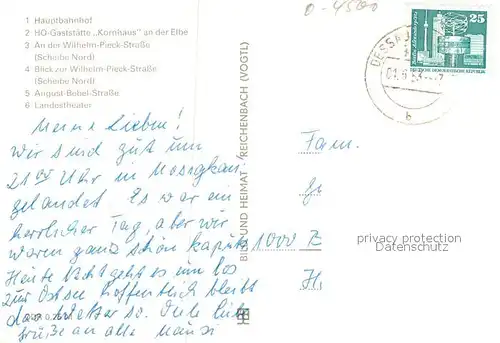 0-4500
1 Hauptbahnhof
2 HO-Gaststätte „Kornhaus" an der Elbe
3 An der Wilhelm-Pieck-Straße
(Scheibe Nord)
4 Blick zur Wilhelm-Pieck-Straße
(Scheibe Nord)
5 August-Bebel-Straße
6 Landestheater
25
DEUTSCHE DEMOKRATISCHE REPUBLIK
DESSAU
b
BILD UND HEIMAT REICHENBACH (VOGTL)
Meine Lieben!
Wir sind gut um
21 00 Uhr in Mosigkau
gelandet. Es war ein
herrlicher Tag, aber wir
waren ganz schön kaputt.
Heute Nacht geht es um los
zur Ostsee hoffentlich bleibt
das Wetter so. Viele liebe
Grüße an alle Mausi
Fam.
1000 B
H
privacy protection
Datenschutz